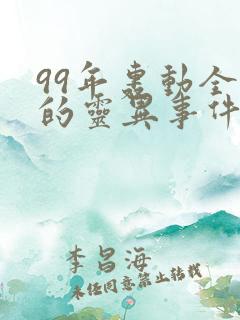 99年轰動全
的靈異事件
李昌海
未经同意禁止转载